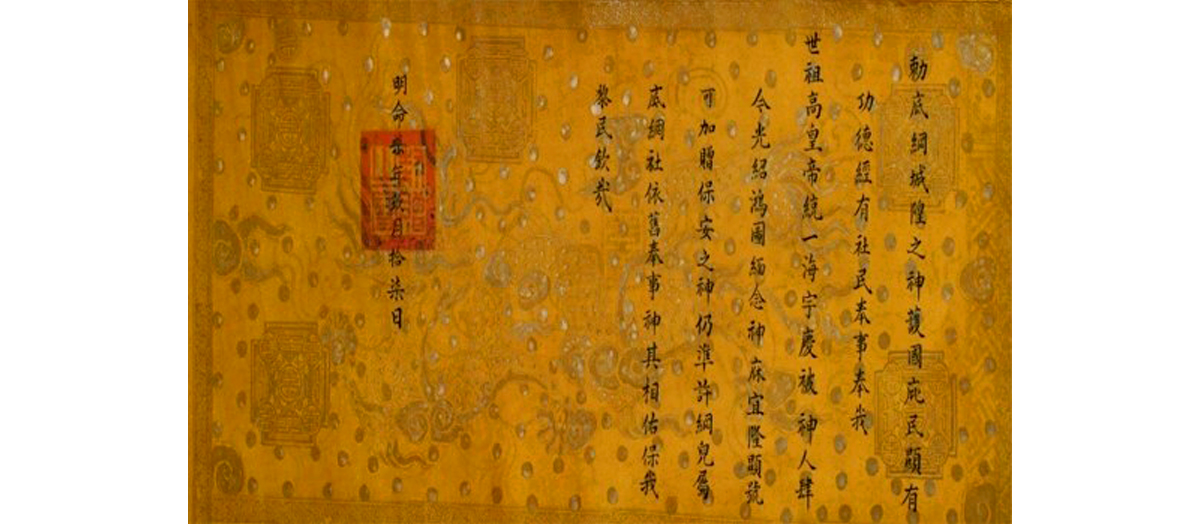 勅底綱城隍之神護國庇民顯有
功德經有社民奉事奉我
世祖高皇帝統一海宇慶被神人肆
今光紹鴻圖緬念神庥宜隆顯號
可加贈保安之神仍準許綱兒屬
底綱社依舊奉事神其相佑保我
黎民欽哉
明命柒年玖月拾柒日